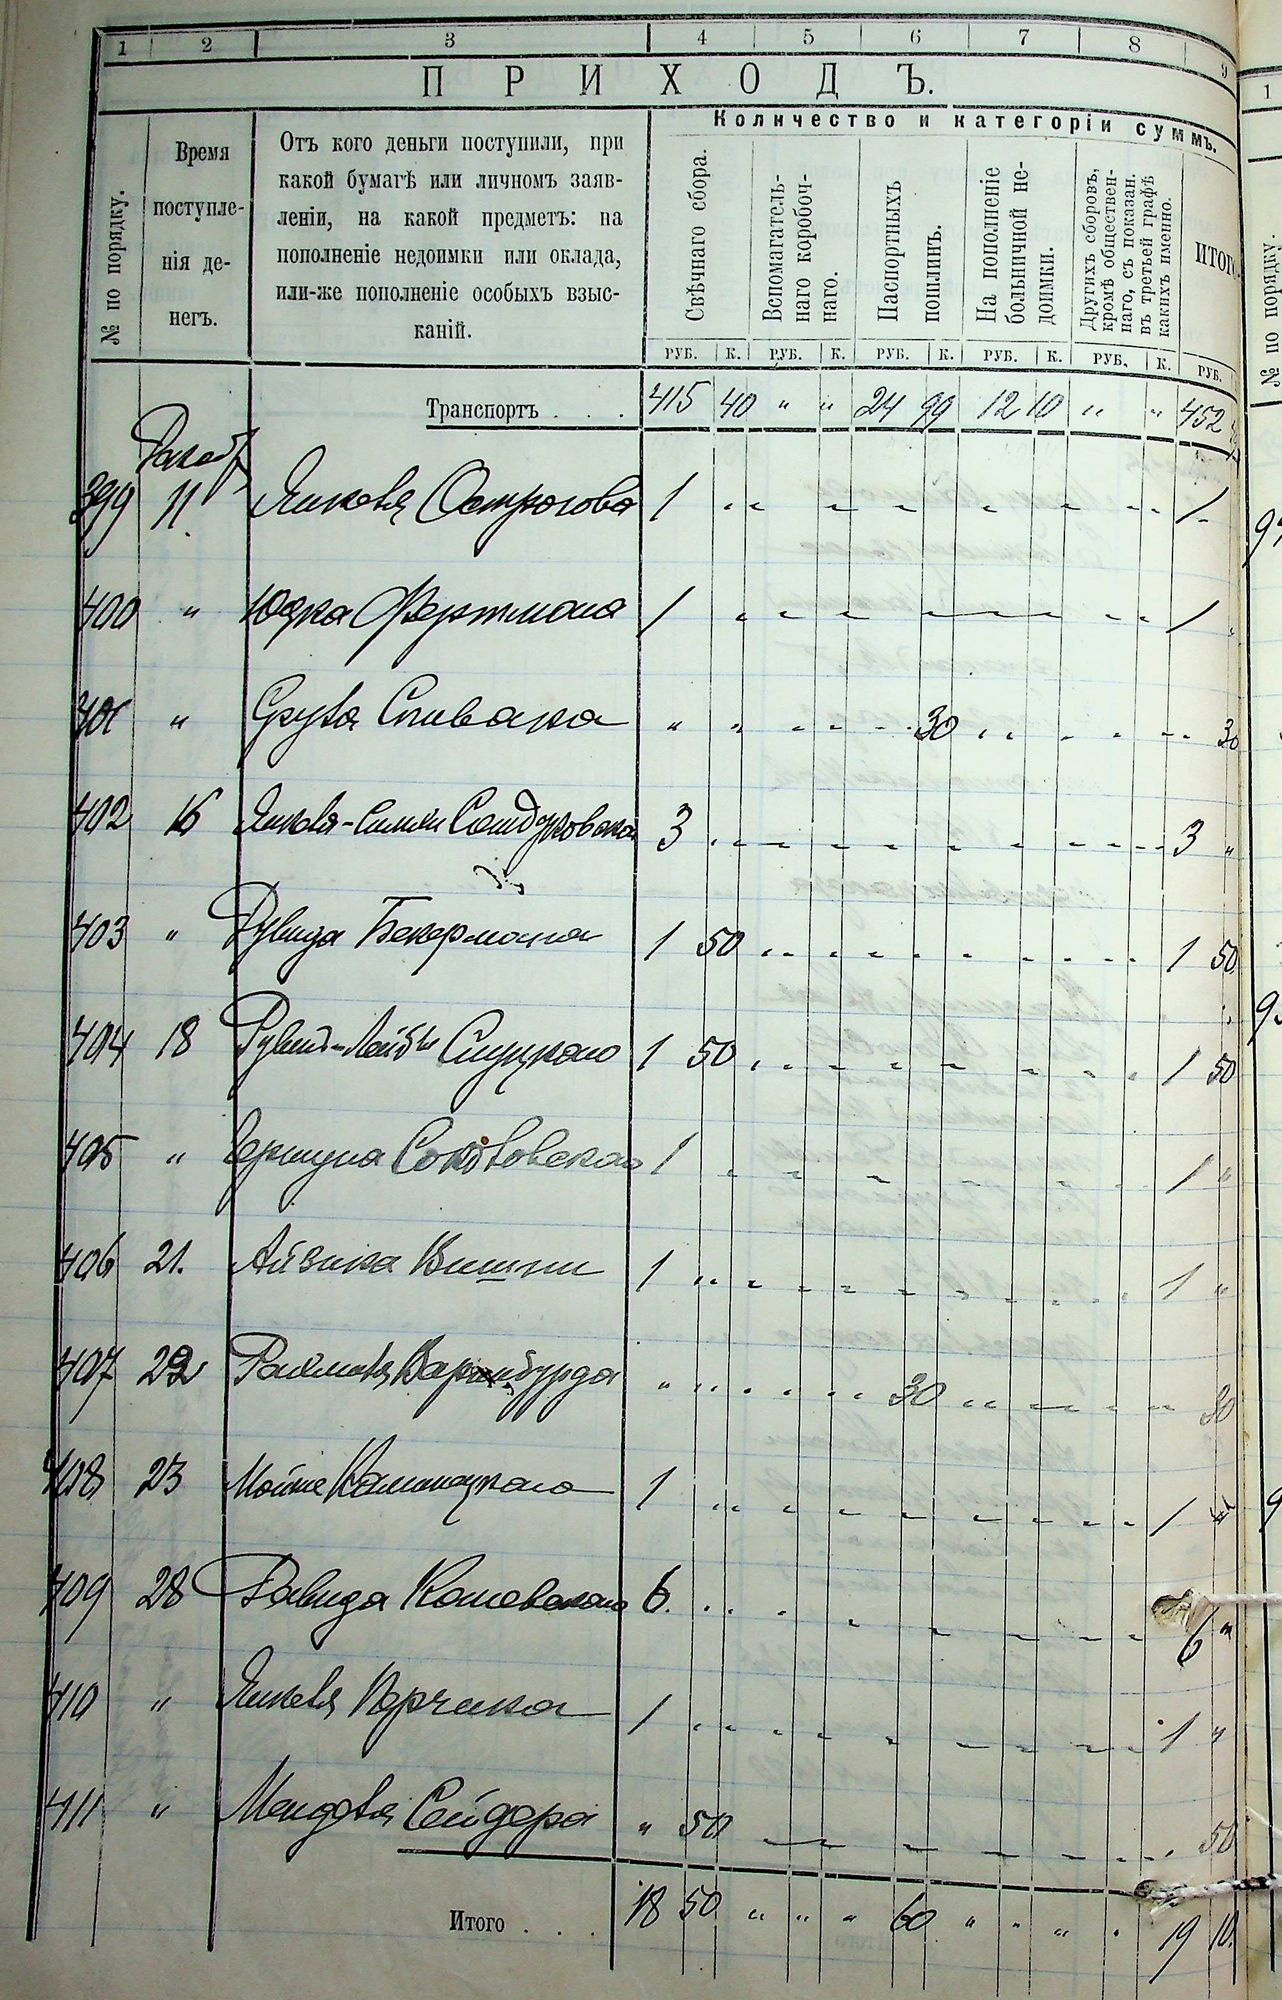 1 2 3 4 5 6 7 8 9
ПРИХОДЪ.
№ по порядку.
Время поступле-
нія де-
негъ.
Отъ кого деньги поступили, при
какой бумагѣ или личномъ заяв-
леніи, на какой предметъ: на
пополненіе недоимки или оклада,
или-же пополненіе особыхъ взыс-
каній.
Количество и категоріи суммъ.
Свѣчнаго сбора.
Вспомагатель-
наго коробоч-
наго.
Паспортныхъ
пошлинъ.
На пополненіе
больничной не-
доимки.
Другихъ сборовъ,
кромѣ обществен-
наго, съ показан.
въ третьей графѣ
какихъ именно.
ИТОГО.
РУБ. К. РУБ. К. РУБ. К. РУБ. К. РУБ. К. РУБ.
Транспортъ . . . 415 40 " " 24 99 12 10 " " 452
399 11 Янкеля 1 1
400 " Юдка Фертмана 1 1
401 " Спивака " " 30 30
402 16 3 3 "
403 " Рувида Бекермана 1 50 1 50
404 18 Слуцкаго 1 50 1 50
405 " 1 1 "
406 21. Айзика Вишни 1 1 "
407 22 " 30 30
408 23 Мошке 1 1
409 28 Давида 6. 6 "
410 " Янкеля Корчака 1 1 "
411 " Менделя Сейдера " 50 50
Итого . . . 18 50 " " " 60 " " " 19 10.
1
№ по порядку.